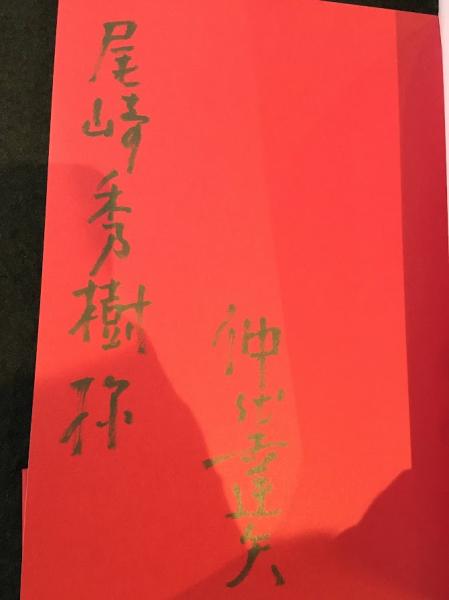 仲代達矢
尾崎秀樹様